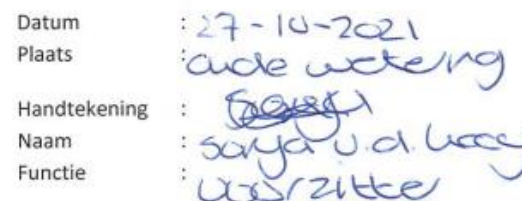 Datum : 27-10-2021
Plaats : oude wetering
Handtekening :
Naam : sonja v.d.
Functie : voorzitter